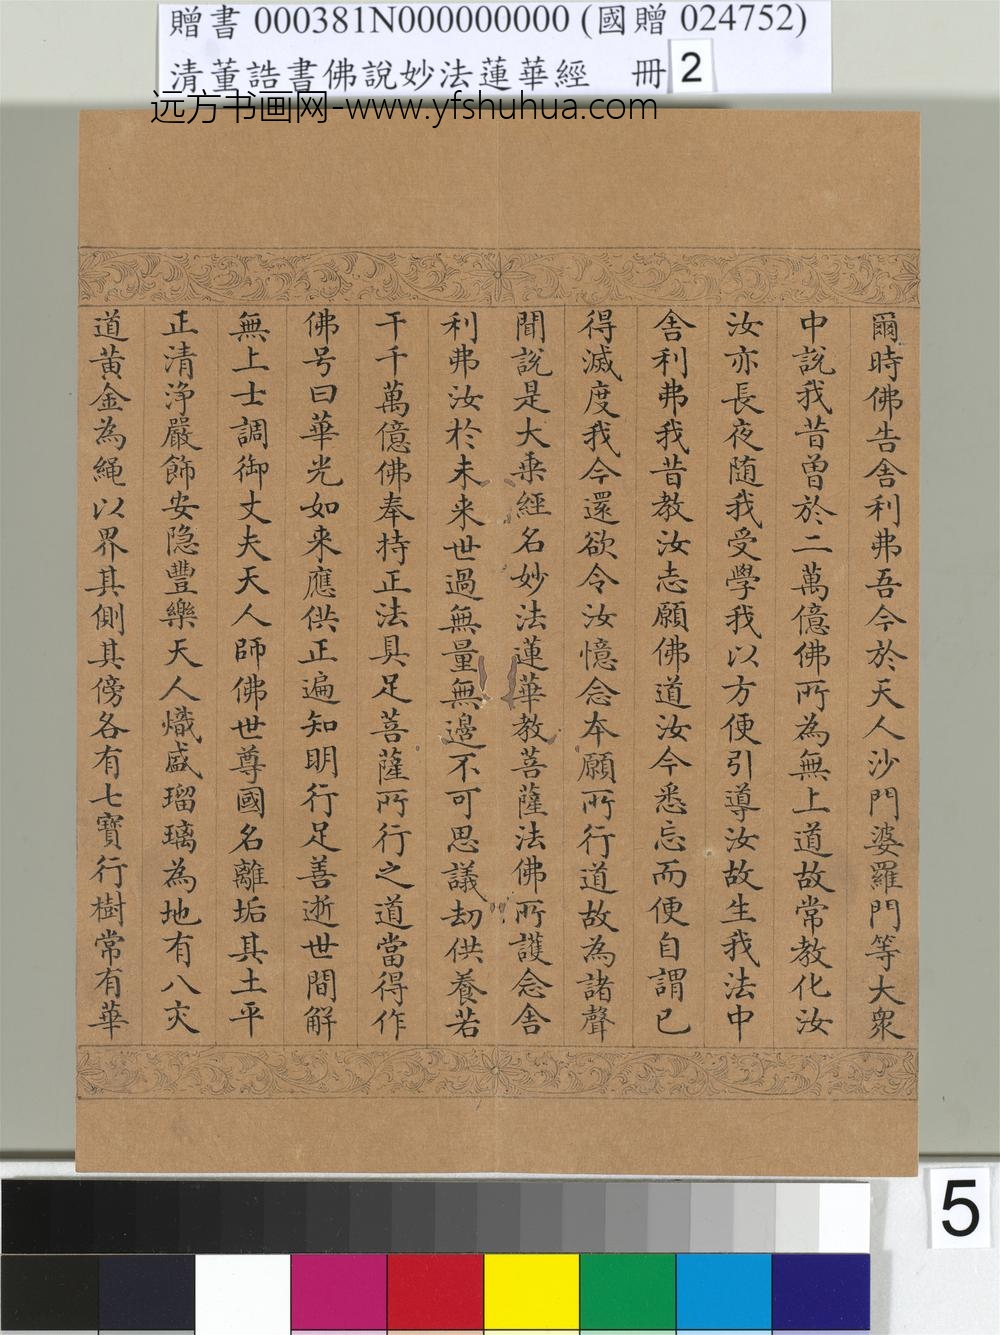 贈書 000381N000000000 (國贈 024752)
清董誥書佛說妙法蓮華經 冊 2
远方书画网-www.yfshuhua.com
爾時佛告舍利弗吾今於天人沙門婆羅門等大衆
中說我昔曾於二萬億佛所為無上道故常教化汝
汝亦長夜随我受學我以方便引導汝故生我法中
舍利弗我昔教汝志願佛道汝今悉忘而便自謂已
得滅度我今還欲令汝憶念本願所行道故為諸聲
聞說是大乗經名妙法蓮華教菩薩法佛所護念舍
利弗汝於未来世過無量無邊不可思議劫供養若
干千萬億佛奉持正法具足菩薩所行之道當得作
佛号曰華光如来應供正遍知明行足善逝世間解
無上士調御丈夫天人師佛世尊國名離垢其土平
正清浄嚴飾安隐豐樂天人熾盛瑠璃為地有八交
道黃金為繩以界其側其傍各有七寶行樹常有華
5